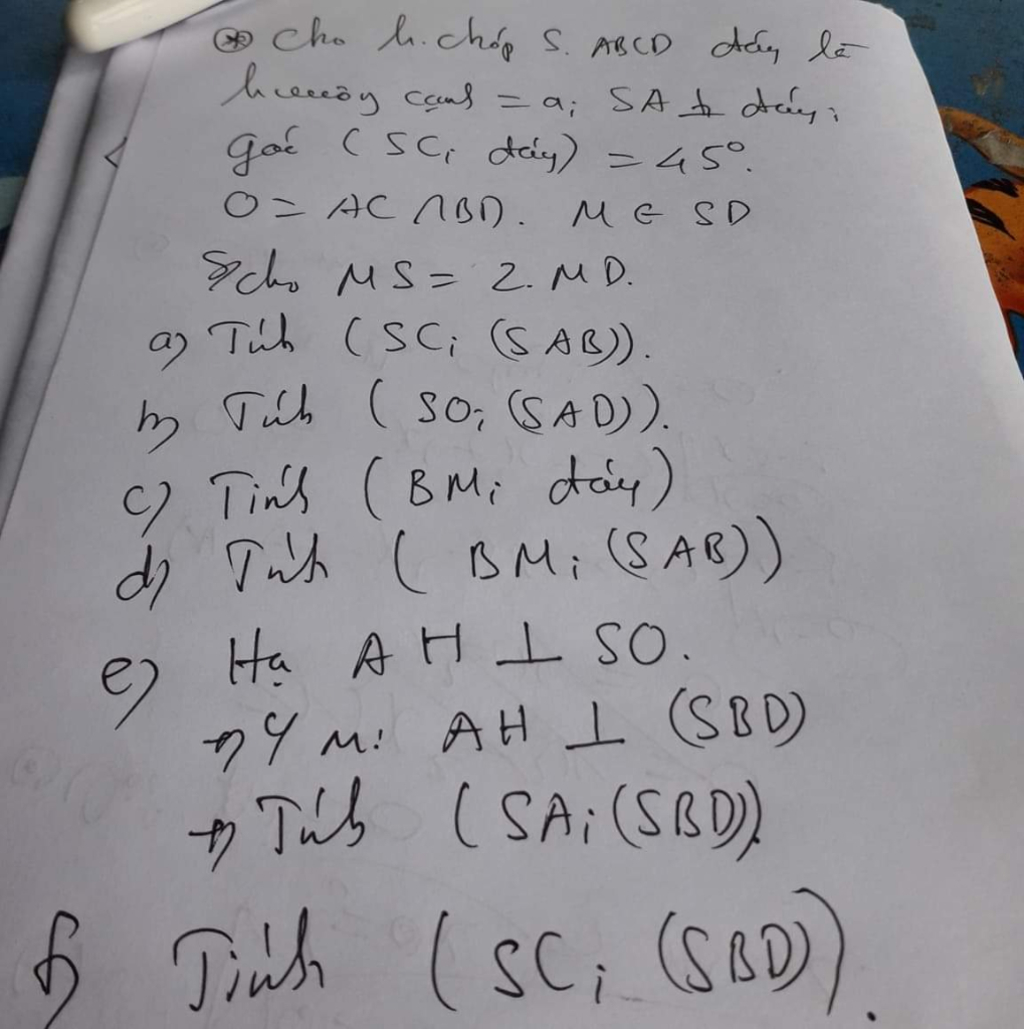 ⊛ Cho h.chóp S.ABCD đáy là
h.vuông cạnh = a; SA ⊥ đáy;
góc (SC; đáy) = 45°.
O = AC ∩ BD. M ∈ SD
Scho MS = 2.MD.
a) Tính (SC; (SAB)).
b) Tính (SO; (SAD)).
c) Tính (BM; đáy)
d) Tính (BM; (SAB))
e) Hạ AH ⊥ SO.
→ CM: AH ⊥ (SBD)
→ Tính (SA; (SBD)).
f) Tính (SC; (SBD)).